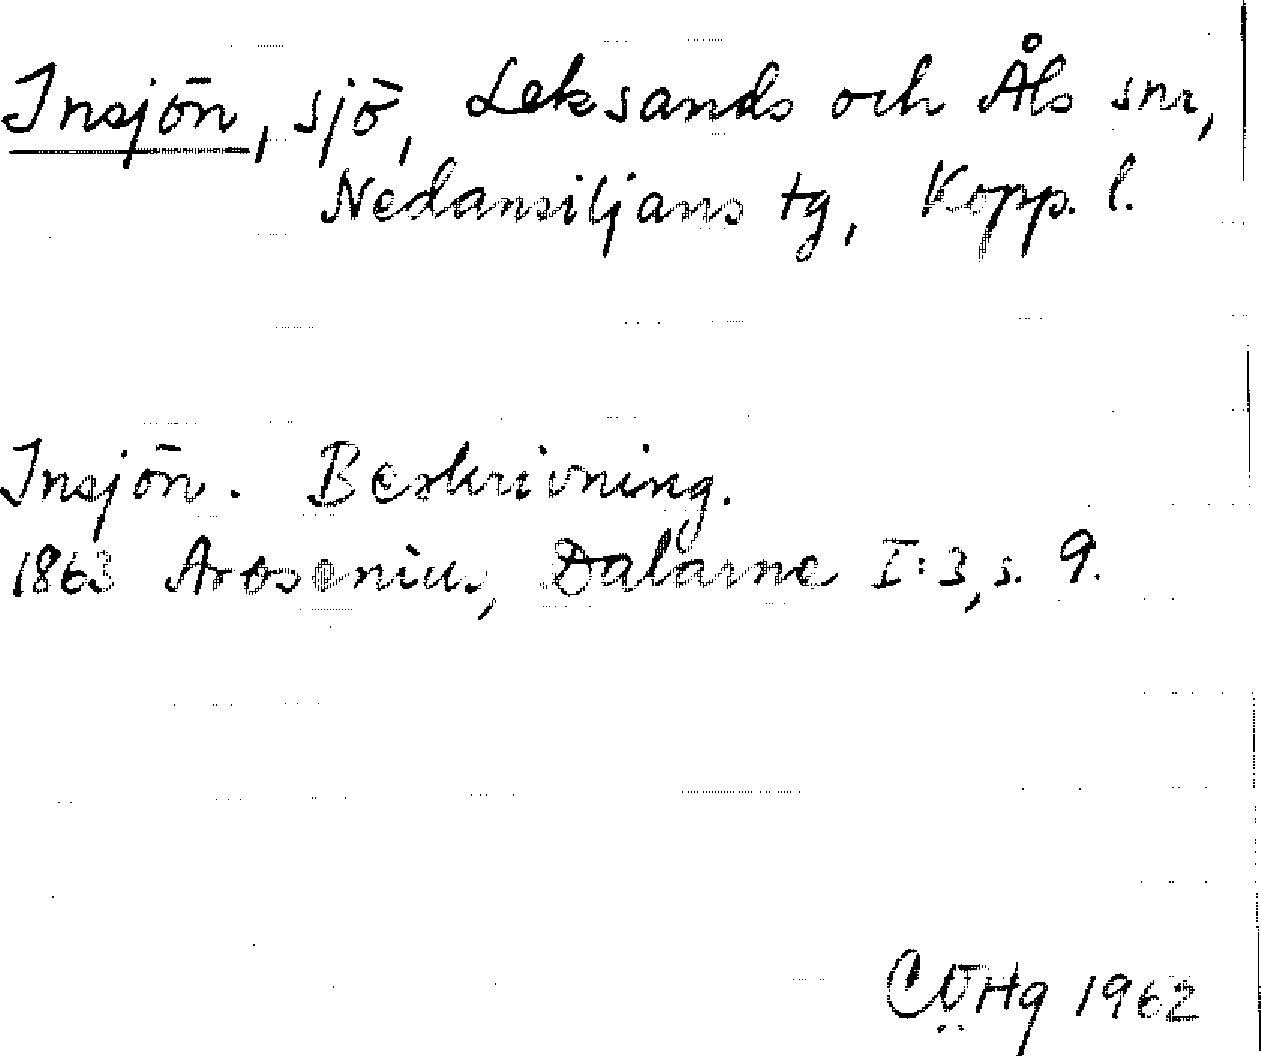 Insjön, sjö, Leksands och Åls snr,
Nedansiljans tg, Kopp. l.
Insjön. Beskrivning.
1863 Arosenius, Dalarne I:3, s. 9.
1962